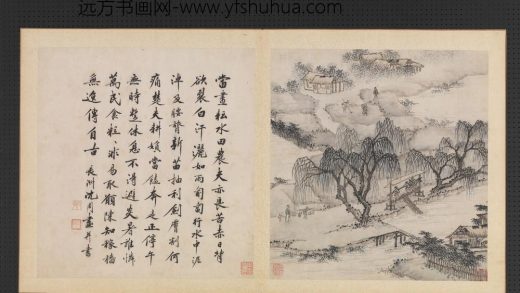 远方书画网-www.yfshuhua.com
當晝耘水田農夫亦良苦赤日背
欲裂白汗灑如雨匍匐行水中泥
淖及腰膂新苗抽利劍割膚何
痛楚夫耘婦當饁奔走正停午
無時暫休息不得避炎暑誰憐
萬民食粒粒非易取願陳知稼穡
無逸傳自古 長洲沈周畫并書